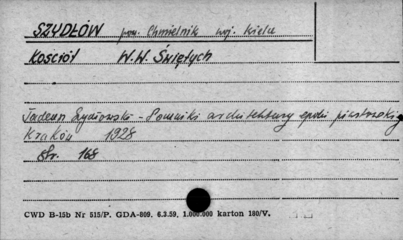 SZYDŁÓW pow. Chmielnik woj. Kielce
Kościół W.W. Świętych
Tadeusz Szydłowski - Pomniki architektury epoki piastowskiej
Kraków 1928
Str. 168
CWD B-15b Nr 515/P. GDA-809. 6.3.59. 1.000.000 karton 180/V.